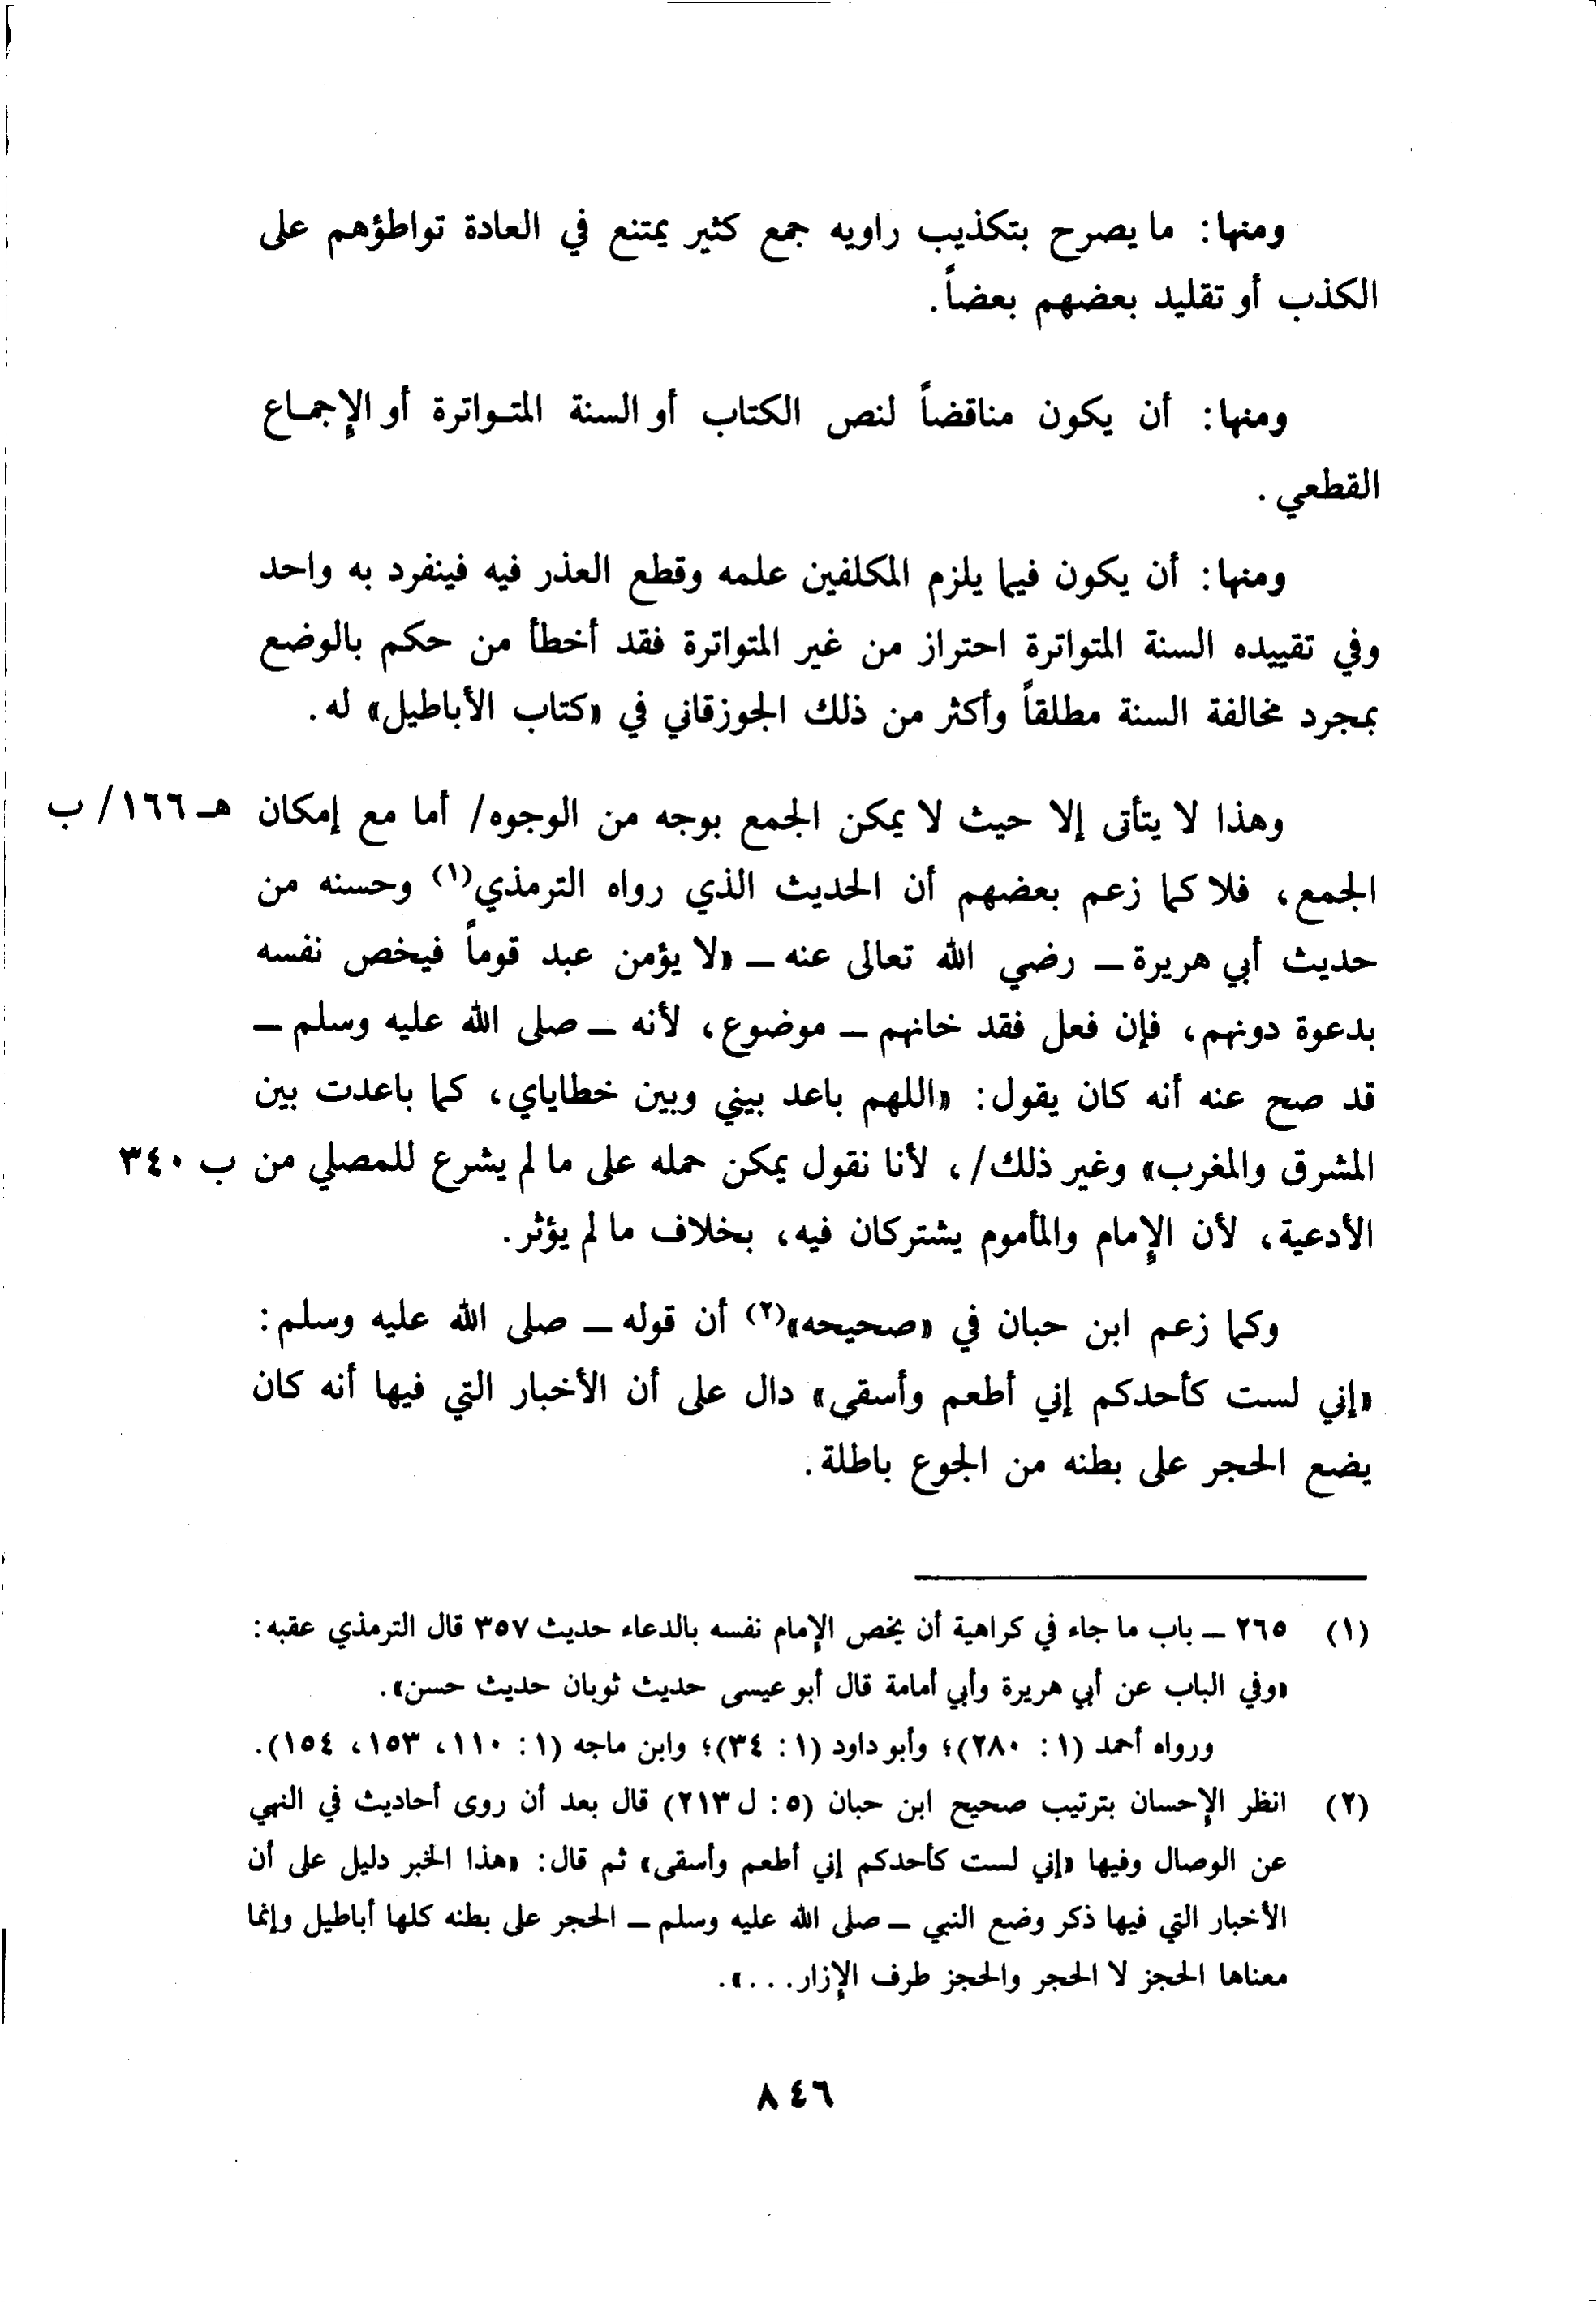 ومنها: ما يصرح بتكذيب راويه جمع كثير يمتنع في العادة تواطؤهم على
الكذب أو تقليد بعضهم بعضاً.
ومنها: أن يكون مناقضاً لنص الكتاب أو السنة المتـواترة أو الإجمـاع
القطعي.
ومنها: أن يكون فيما يلزم المكلفين علمه وقطع العذر فيه فينفرد به واحد
وفي تقييده السنة المتواترة احتراز من غير المتواترة فقد أخطأ من حكم بالوضع
بمجرد مخالفة السنة مطلقاً وأكثر من ذلك الجوزقاني في «كتاب الأباطيل» له.
وهذا لا يتأتى إلا حيث لا يمكن الجمع بوجه من الوجوه/ أما مع إمكان هـ ١٦٦/ ب
الجمع، فلا كما زعم بعضهم أن الحديث الذي رواه الترمذي(١) وحسنه من
حديث أبي هريرة ــ رضي الله تعالى عنه ــ «لا يؤمن عبد قوماً فيخص نفسه
بدعوة دونهم، فإن فعل فقد خانهم ــ موضوع، لأنه ــ صلى الله عليه وسلم ــ
قد صح عنه أنه كان يقول: «اللهم باعد بيني وبين خطاياي، كما باعدت بين
المشرق والمغرب» وغير ذلك/، لأنا نقول يمكن حمله على ما لم يشرع للمصلي من ب ٣٤٠
الأدعية، لأن الإمام والمأموم يشتركان فيه، بخلاف ما لم يؤثر.
وكما زعم ابن حبان في «صحيحه»(٢) أن قوله ــ صلى الله عليه وسلم:
«إني لست كأحدكم إني أطعم وأسقى» دال على أن الأخبار التي فيها أنه كان
يضع الحجر على بطنه من الجوع باطلة.
(١) ٢٦٥ ــ باب ما جاء في كراهية أن يخص الإمام نفسه بالدعاء حديث ٣٥٧ قال الترمذي عقبه:
«وفي الباب عن أبي هريرة وأبي أمامة قال أبو عيسى حديث ثوبان حديث حسن».
ورواه أحمد (١: ٢٨٠)؛ وأبو داود (١: ٣٤)؛ وابن ماجه (١: ١١٠، ١٥٣، ١٥٤).
(٢) انظر الإحسان بترتيب صحيح ابن حبان (٥: ل ٢١٣) قال بعد أن روى أحاديث في النهي
عن الوصال وفيها «إني لست كأحدكم إني أطعم وأسقى» ثم قال: «هذا الخبر دليل على أن
الأخبار التي فيها ذكر وضع النبي ــ صلى الله عليه وسلم ــ الحجر على بطنه كلها أباطيل وإنما
معناها الحجز لا الحجر والحجز طرف الإزار...».
٨٤٦